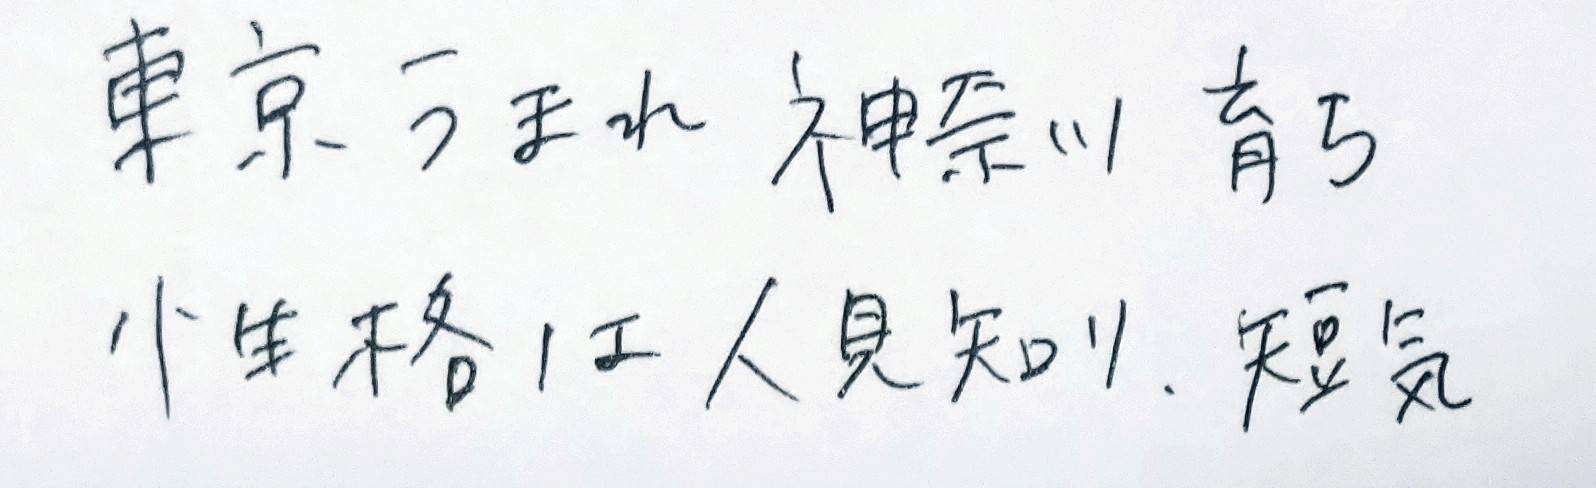 東京うまれ 神奈川 育ち
性格は人見知り、短気